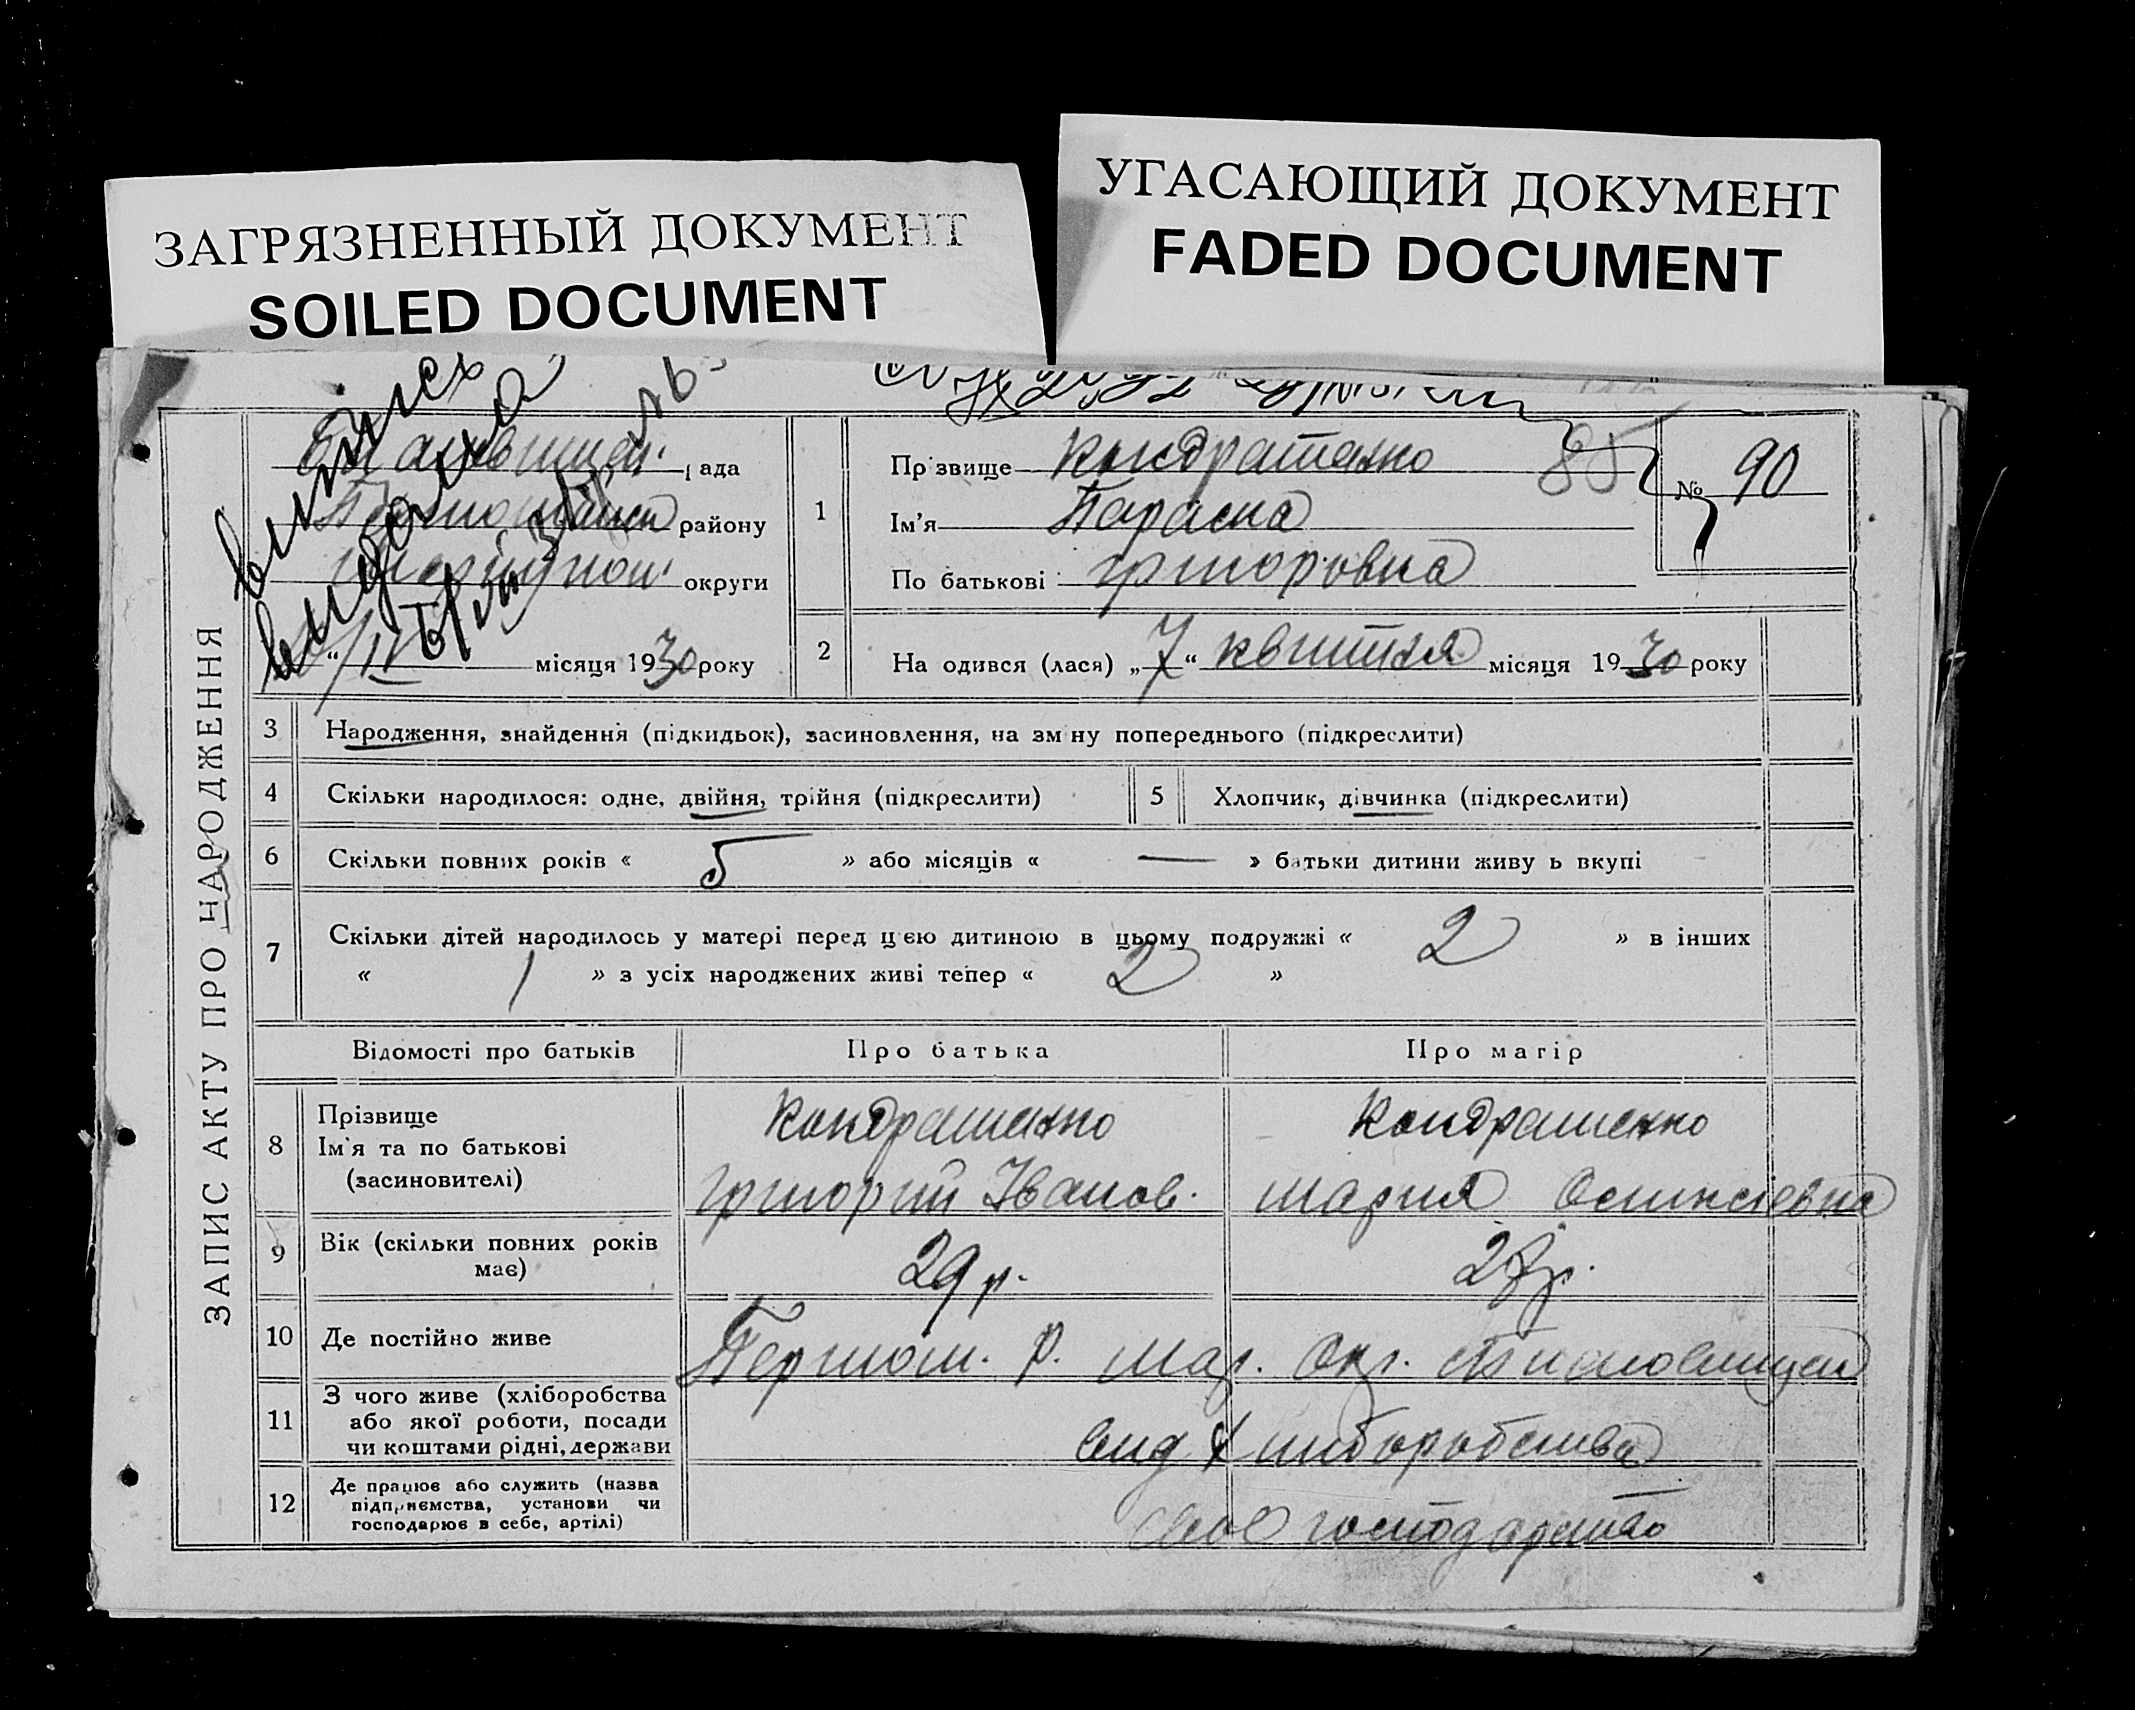 ЗАГРЯЗНЕННЫЙ ДОКУМЕНТ
SOILED DOCUMENT
УГАСАЮЩИЙ ДОКУМЕНТ
FADED DOCUMENT
ЗАПИС АКТУ ПРО НАРОДЖЕННЯ
ада
району
округи
/IV місяця 1930 року
1
Прізвище Кондратенко 85
Ім'я Параска
По батькові григоровна
№ 90
2
На одився (лася) „7“ квітня місяця 1930 року
3 Народження, знайдення (підкидьок), засиновлення, на зм ну попереднього (підкреслити)
4 Скільки народилося: одне, двійня, трійня (підкреслити)
5 Хлопчик, дівчинка (підкреслити)
6 Скільки повних років « 5 » або місяців « — » батьки дитини живу ь вкупі
7 Скільки дітей народилось у матері перед цією дитиною в цьому подружжі « 2 » в інших
« 1 » з усіх народжених живі тепер « 2 »
Відомості про батьків Про батька Про матір
8 Прізвище
Ім'я та по батькові
(засиновителі)
Кондратенко
григорий Іванов.
Кондратенко
мария
9 Вік (скільки повних років
має)
29 р.
27 р.
10 Де постійно живе
Першом. р. Мар. Окр.
11 З чого живе (хліборобства
або якої роботи, посади
чи коштами рідні, держави
вид хлиборобства
12 Де працює або служить (назва
підприємства, установи чи
господарює в себе, артілі)
своє господарство